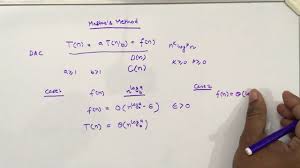 Master's Method
DAC T(n) = a T(n/b) + f(n) n^k log^p n
D(n)
a≥1 b>1 C(n) k≥0 p≥0
Case1: f(n) n^log_b^a Case2: f(n) = Θ(
f(n) = O(n^log_b^a - ε) ε>0
T(n) = Θ(n^log_b^a)